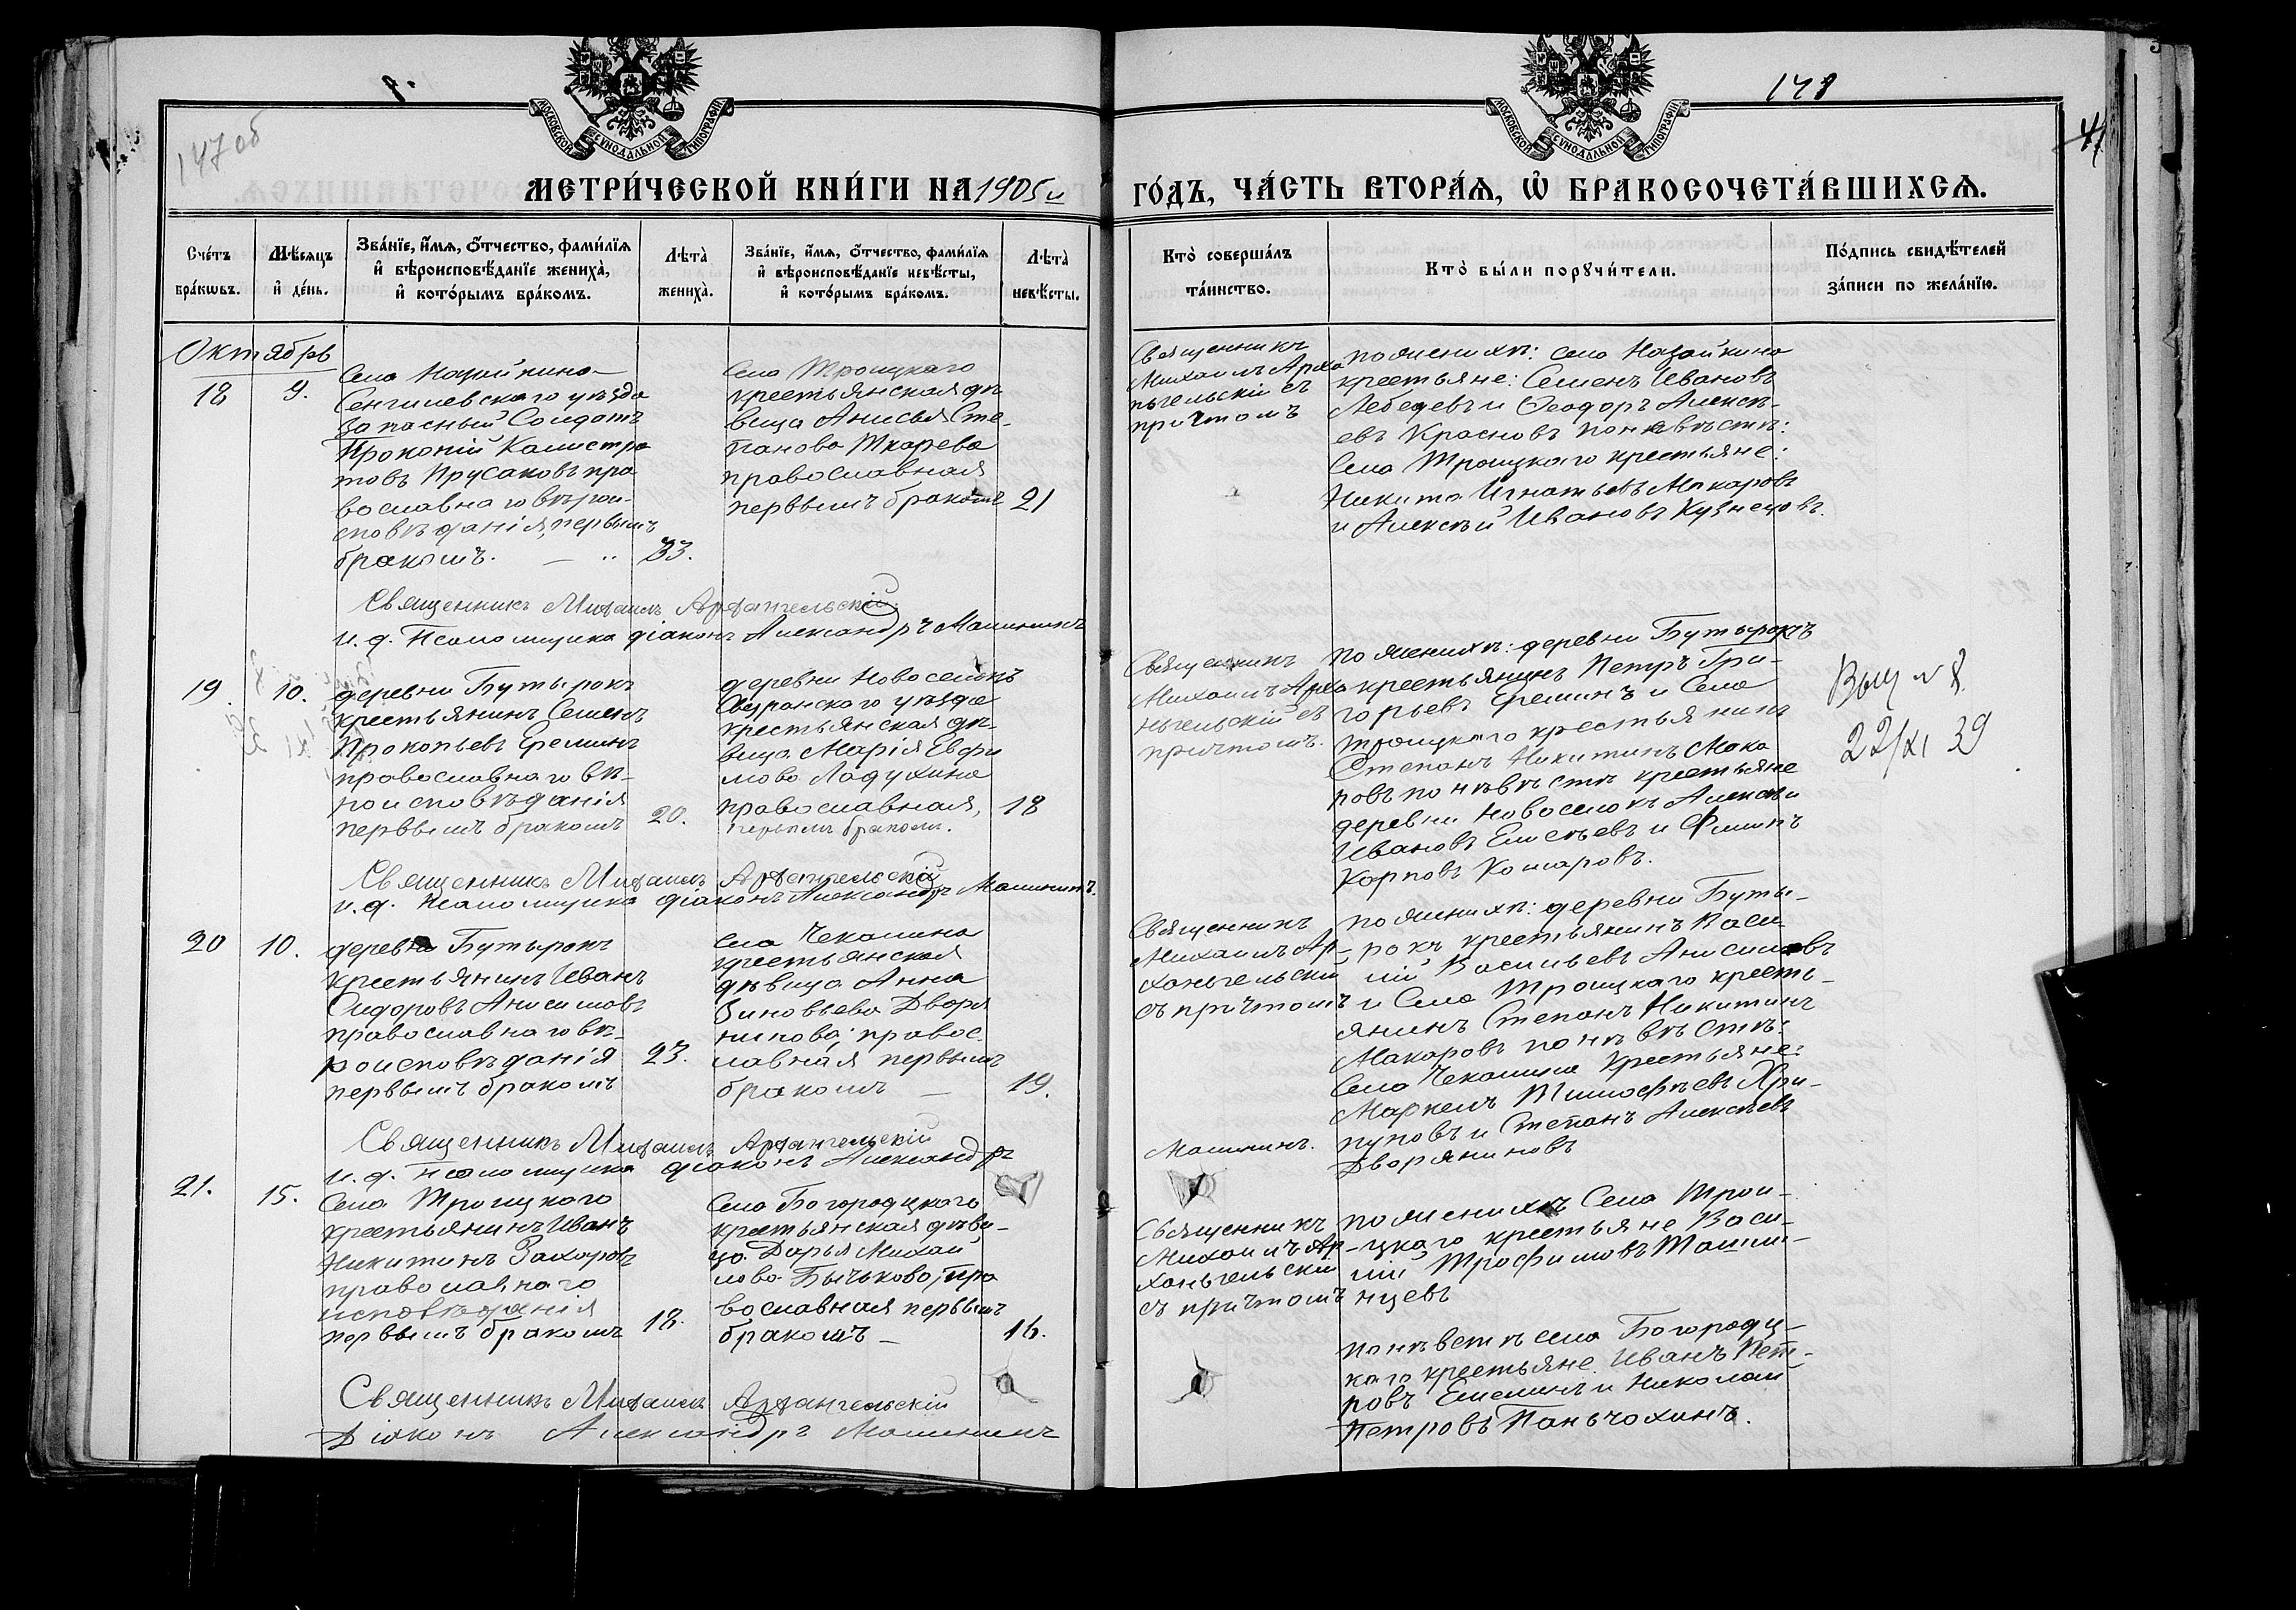 147об
148
41
МОСКОВСКОЙ СѴНОДАЛЬНОЙ ТИПОГРАФІИ
МОСКОВСКОЙ СѴНОДАЛЬНОЙ ТИПОГРАФІИ
МЕТРИ́ЧЕСКОЙ КНИ́ГИ НА 1905й
ГО́ДЪ, ЧА́СТЬ ВТОРА́Ѧ, Ѡ҆ БРАКОСОЧЕТА́ВШИХСѦ.
Сче́тъ
бра́кѡвъ.
Мѣ́сяцъ
и҆ де́нь.
Зва́нїе, и҆́мѧ, ѻ҆́тчество, фами́лїѧ
и҆ вѣроисповѣ́данїе жениха̀,
и҆ кото́рымъ бра́комъ.
Лѣта̀
жениха̀.
Зва́нїе, и҆́мѧ, ѻ҆́тчество, фами́лїѧ
и҆ вѣроисповѣ́данїе невѣ́сты,
и҆ кото́рымъ бра́комъ.
Лѣта̀
невѣ́сты.
Кто̀ соверша́лъ
та́инство.
Кто̀ бы́ли порꙋчи́тели.
По́дпись свидѣ́телей
за́писи по жела́нїю.
Октябрь
18
9.
Села Назайкина
Сенгилеевскаго уѣзда
Запасный Солдатъ
Прокопій Калистра
товъ Прусаковъ пра
вославнаго вѣрои-
сповѣданія, первымъ
бракомъ.
33.
Села Троицкаго
крестьянская дѣ
вица Анисья Сте-
панова Ткарева
православная
первымъ бракомъ
21
Священникъ
Михаилъ Арха
нгельскій съ
причтомъ
по женихѣ: села Назайкина
крестьяне: Семенъ Ивановъ
Лебедевъ и Ѳеодоръ Алексѣ-
евъ Красновъ по невѣстѣ:
Села Троицкаго крестьяне:
Никита Игнатьевъ Макаровъ
и Алексѣй Ивановъ Кузнецовъ.
Священникъ Михаилъ Архангельскій
и. д. Псаломщика діаконъ Александръ Малининъ
19.
10.
деревни Бутырокъ
крестьянинъ Семенъ
Прокопьевъ Ереминъ
православнаго вѣ-
роисповѣданія
первымъ бракомъ
20.
деревни Новоселокъ
Сызранского уѣзда
крестьянская дѣ-
вица Марія Евфи
мова Ладухина
православная,
первымъ бракомъ.
18
Священникъ
Михаилъ Арха
нгельскій съ
причтомъ.
по женихѣ: деревни Бутырокъ
крестьянинъ Петръ Гри-
горьевъ Ереминъ и Села
Троицкаго крестьянинъ
Степанъ Никитинъ Мака
ровъ по невѣстѣ крестьяне
деревни Новоселокъ Алексѣй
Ивановъ Елисѣевъ и Филипъ
Карповъ Комаровъ.
22/XI 39
Священникъ Михаилъ Архангельскій
и. д. Псаломщика діаконъ Александръ Малининъ.
20
10.
деревни Бутырокъ
крестьянинъ Иванъ
Сидоровъ Анисимовъ
православнаго вѣ-
роисповѣданія
первымъ бракомъ
23.
села Чекалина
крестьянская
дѣвица Анна
Зиновьева Дворя
нинова; правос-
лавная первымъ
бракомъ
19.
Священникъ
Михаилъ Ар-
хангельскій
съ причтомъ
по женихѣ: деревни Буты-
рокъ крестьянинъ Васи-
лій Васильевъ Анисимовъ
и Села Троицкаго кресть-
янинъ Степанъ Никитинъ
Макаровъ по невѣстѣ:
Села Чекалина крестьяне:
Маркелъ Тимофѣевъ Хри-
пуновъ и Степанъ Алексѣевъ
Дворяниновъ
Священникъ Михаилъ Архангельскій
и. д. псаломщика діаконъ Александръ
Малининъ.
21.
15.
Села Троицкаго
крестьянинъ Иванъ
Никитинъ Захаровъ
православнаго
исповѣданія
первымъ бракомъ
18.
Села Богородцкаго
крестьянская дѣви-
ца Дарья Михай
лова Бычькова, пра
вославная первымъ
бракомъ
16.
Священникъ
Михаилъ Ар-
хангельскій
съ причтомъ
по женихѣ Села Трои-
цкаго крестьяне Васи-
лій Трофимовъ
нцевъ
по невѣстѣ села Богородц-
каго крестьяне Иванъ Пет-
ровъ Емелинъ и Николай
Петровъ Паньчохинъ.
Священникъ Михаилъ Архангельскій
Діаконъ Александръ Малининъ